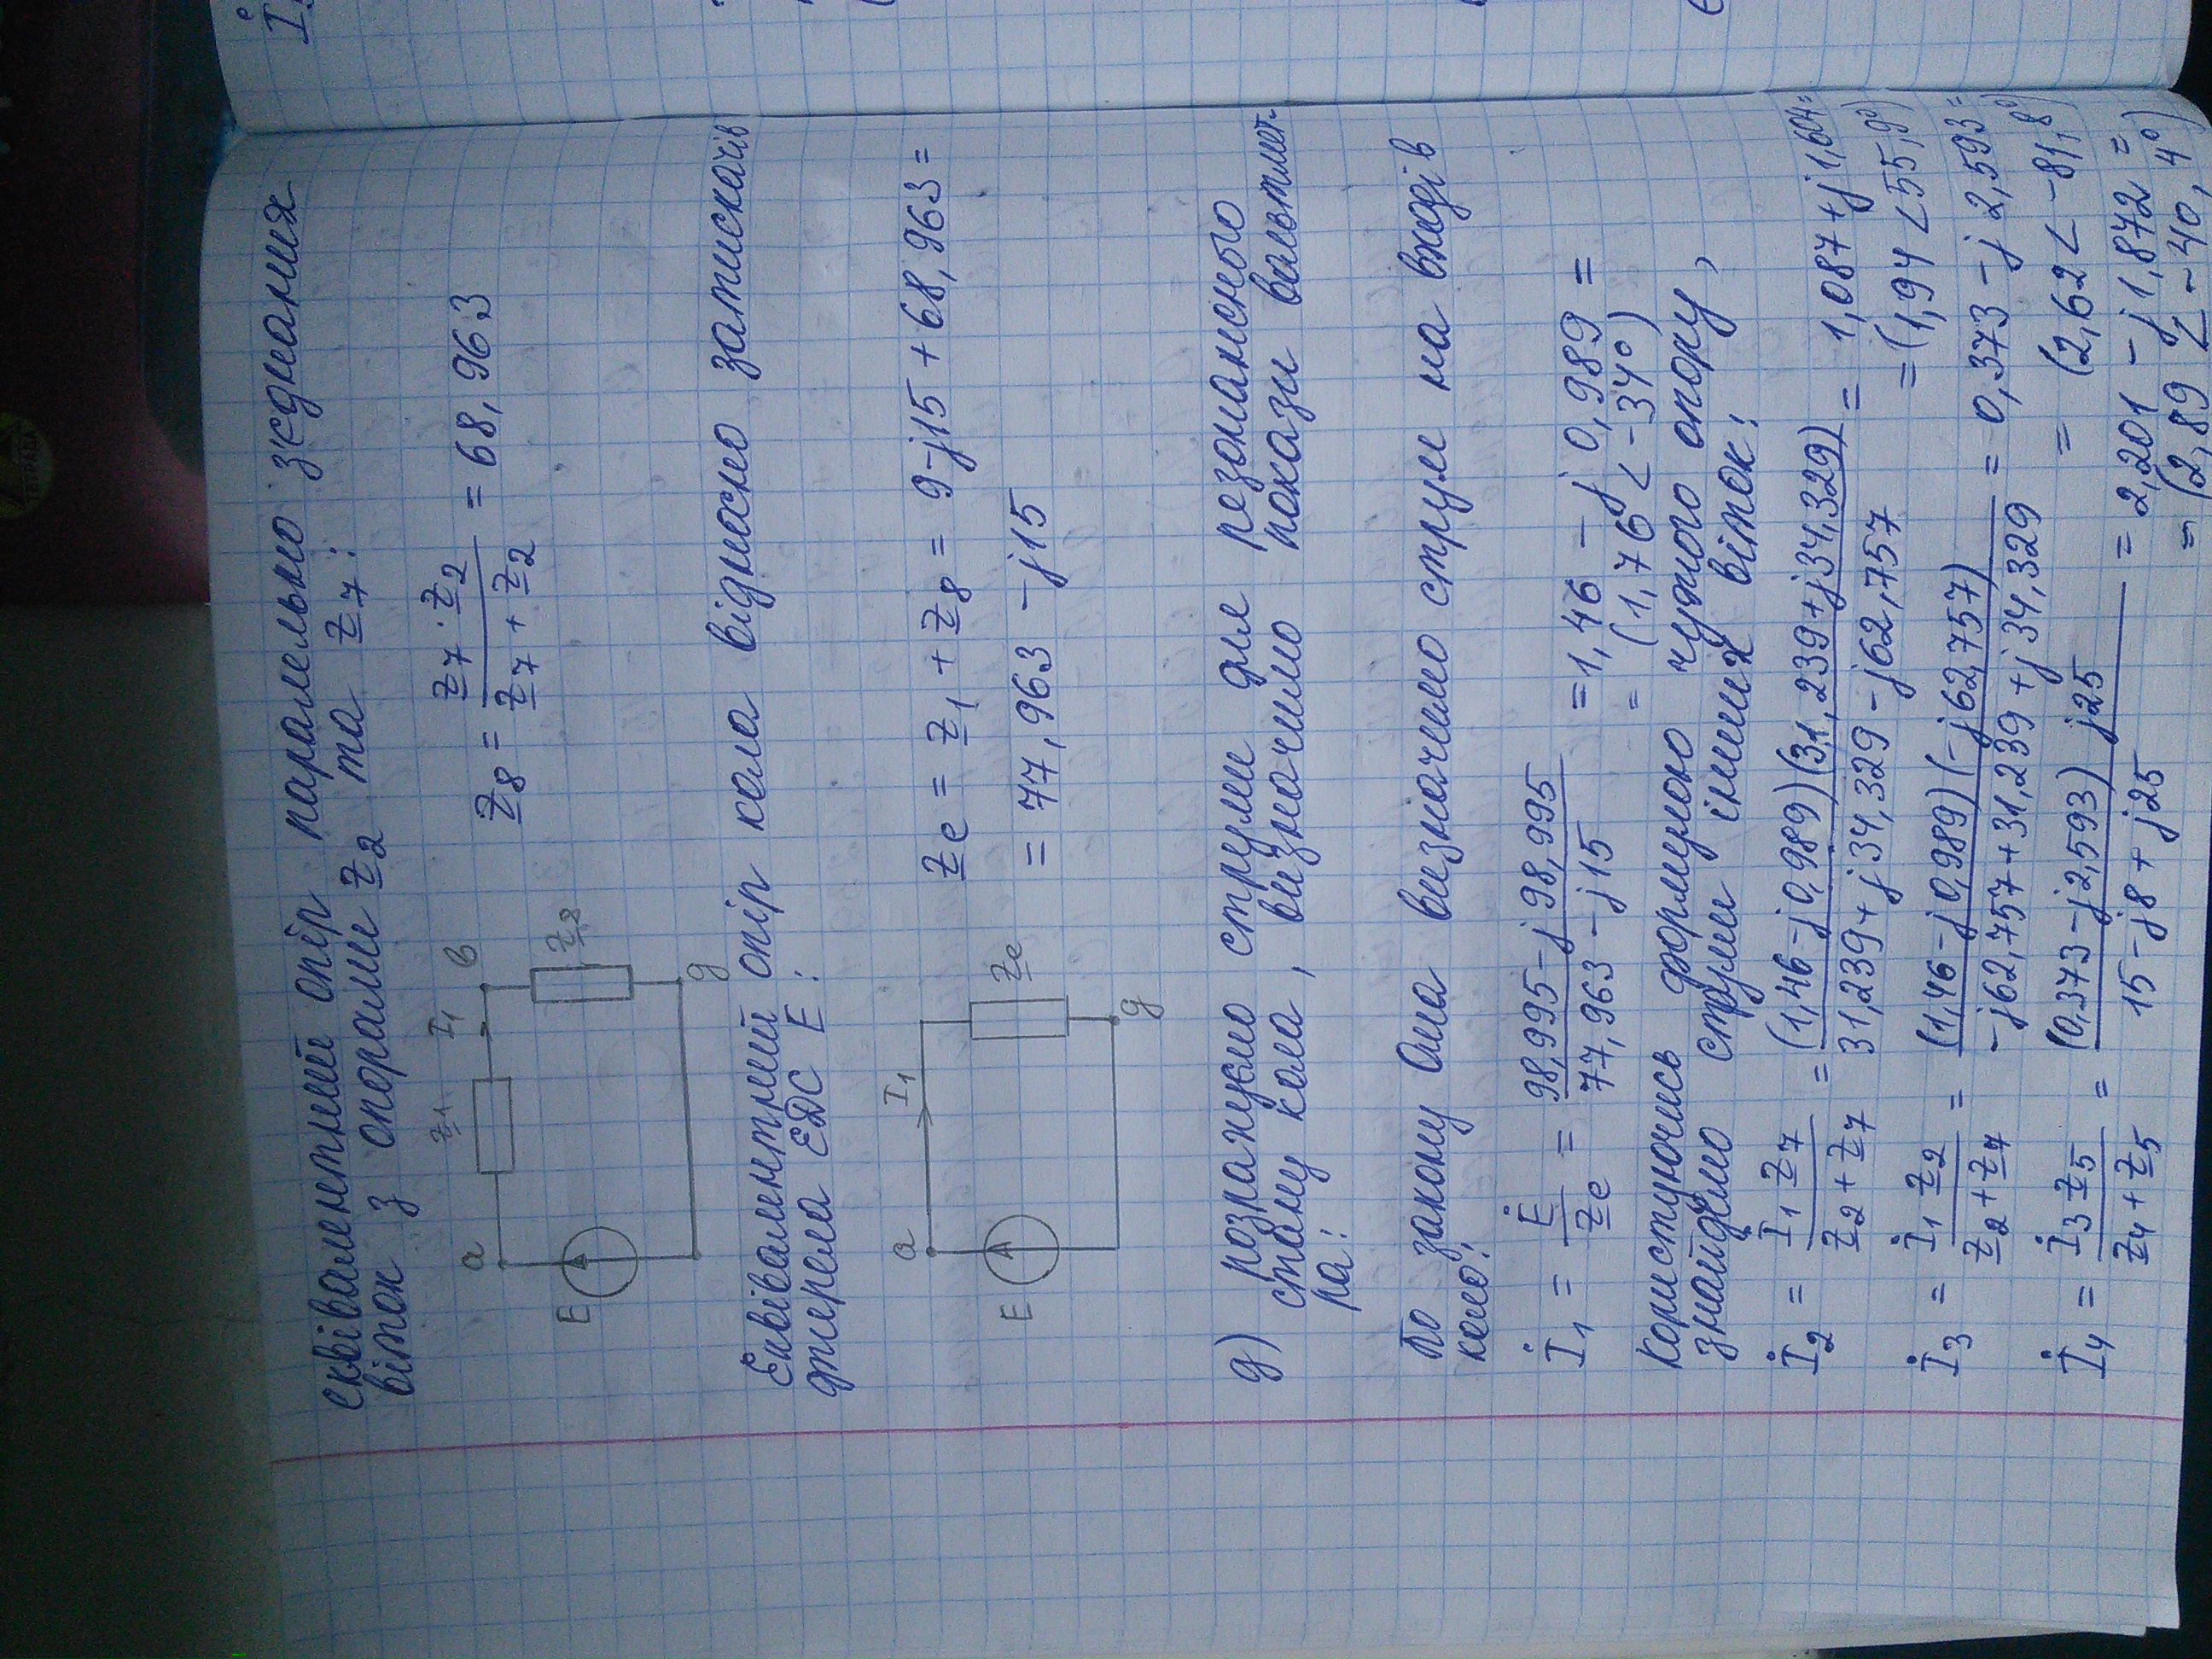 еквівалентний опір паралельно зєднаних
віток з опорами Z2 та Z7:
a Z1 I1 в
E Z8 g
Z8 = Z7 · Z2 / (Z7 + Z2) = 68,963
Еквівалентний опір кола відносно затискачів
джерела ЕДС E:
a I1
E Ze g
Ze = Z1 + Z8 = 9-j15 + 68,963 =
= 77,963 - j15
д) розрахуємо струми для резонансного
стану кола, визначимо покази вольтмет-
ра:
По закону Ома визначимо струм на вході в
коло:
İ1 = Ė / Ze = (98,995 - j 98,995) / (77,963 - j15) = 1,46 - j 0,989 =
= (1,76 < -34°)
Користуючись формулою чудного опору,
знайдемо струми інших віток:
İ2 = İ1 Z7 / (Z2 + Z7) = (1,46-j0,989)(31,239+j34,329) / (31,239+j34,329 - j62,757) = 1,087 + j1,604 =
= (1,94 < 55,9°)
İ3 = İ1 Z2 / (Z2 + Z7) = (1,46-j0,989)(-j62,757) / (-j62,757 + 31,239 + j34,329) = 0,373 - j 2,593 =
= (2,62 < -81,8°)
İ4 = İ3 Z5 / (Z4 + Z5) = (0,373 - j2,593) j25 / (15 - j8 + j25) = 2,201 - j1,872 =
= (2,89 < -40,4°)